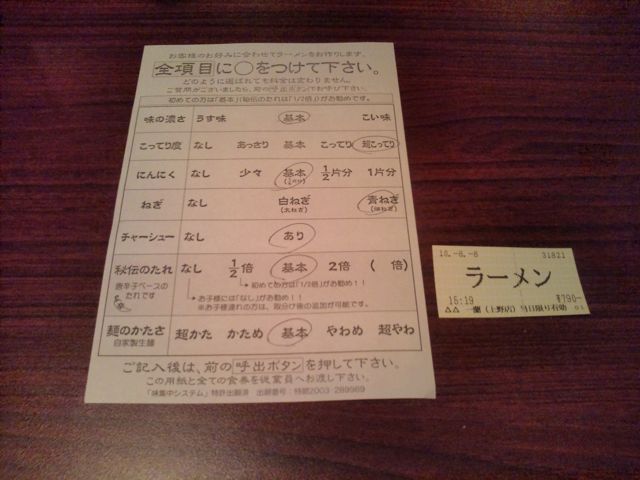 お客様のお好みに合わせてラーメンをお作りします。
全項目に○をつけて下さい。
どのように選ばれても料金は変わりません。
ご質問がございましたら、前の呼出ボタンでお呼び下さい。
初めての方は「基本」(秘伝のたれは「1/2倍」)がお勧めです。
味の濃さ うす味 基本 こい味
こってり度 なし あっさり 基本 こってり 超こってり
にんにく なし 少々 基本 1/2片分 1片分
ねぎ なし 白ねぎ 青ねぎ
(太ねぎ) (細ねぎ)
チャーシュー なし あり
秘伝のたれ なし 1/2倍 基本 2倍 ( 倍)
唐辛子ベースの
たれです
初めての方は「1/2倍」がお勧め!!
お子様には「なし」がお勧め!!
※お子様連れの方は、取分け後の追加が可能です。
麺のかたさ 超かた かため 基本 やわめ 超やわ
自家製生麺
ご記入後は、前の呼出ボタンを押して下さい。
この用紙と全ての食券を従業員へお渡し下さい。
「味集中システム」特許出願済 出願番号:特願2003-289969
10.-6.-8 31821
ラーメン
15:19 ¥790-
△△ 一蘭(上野店) 当日限り有効 01